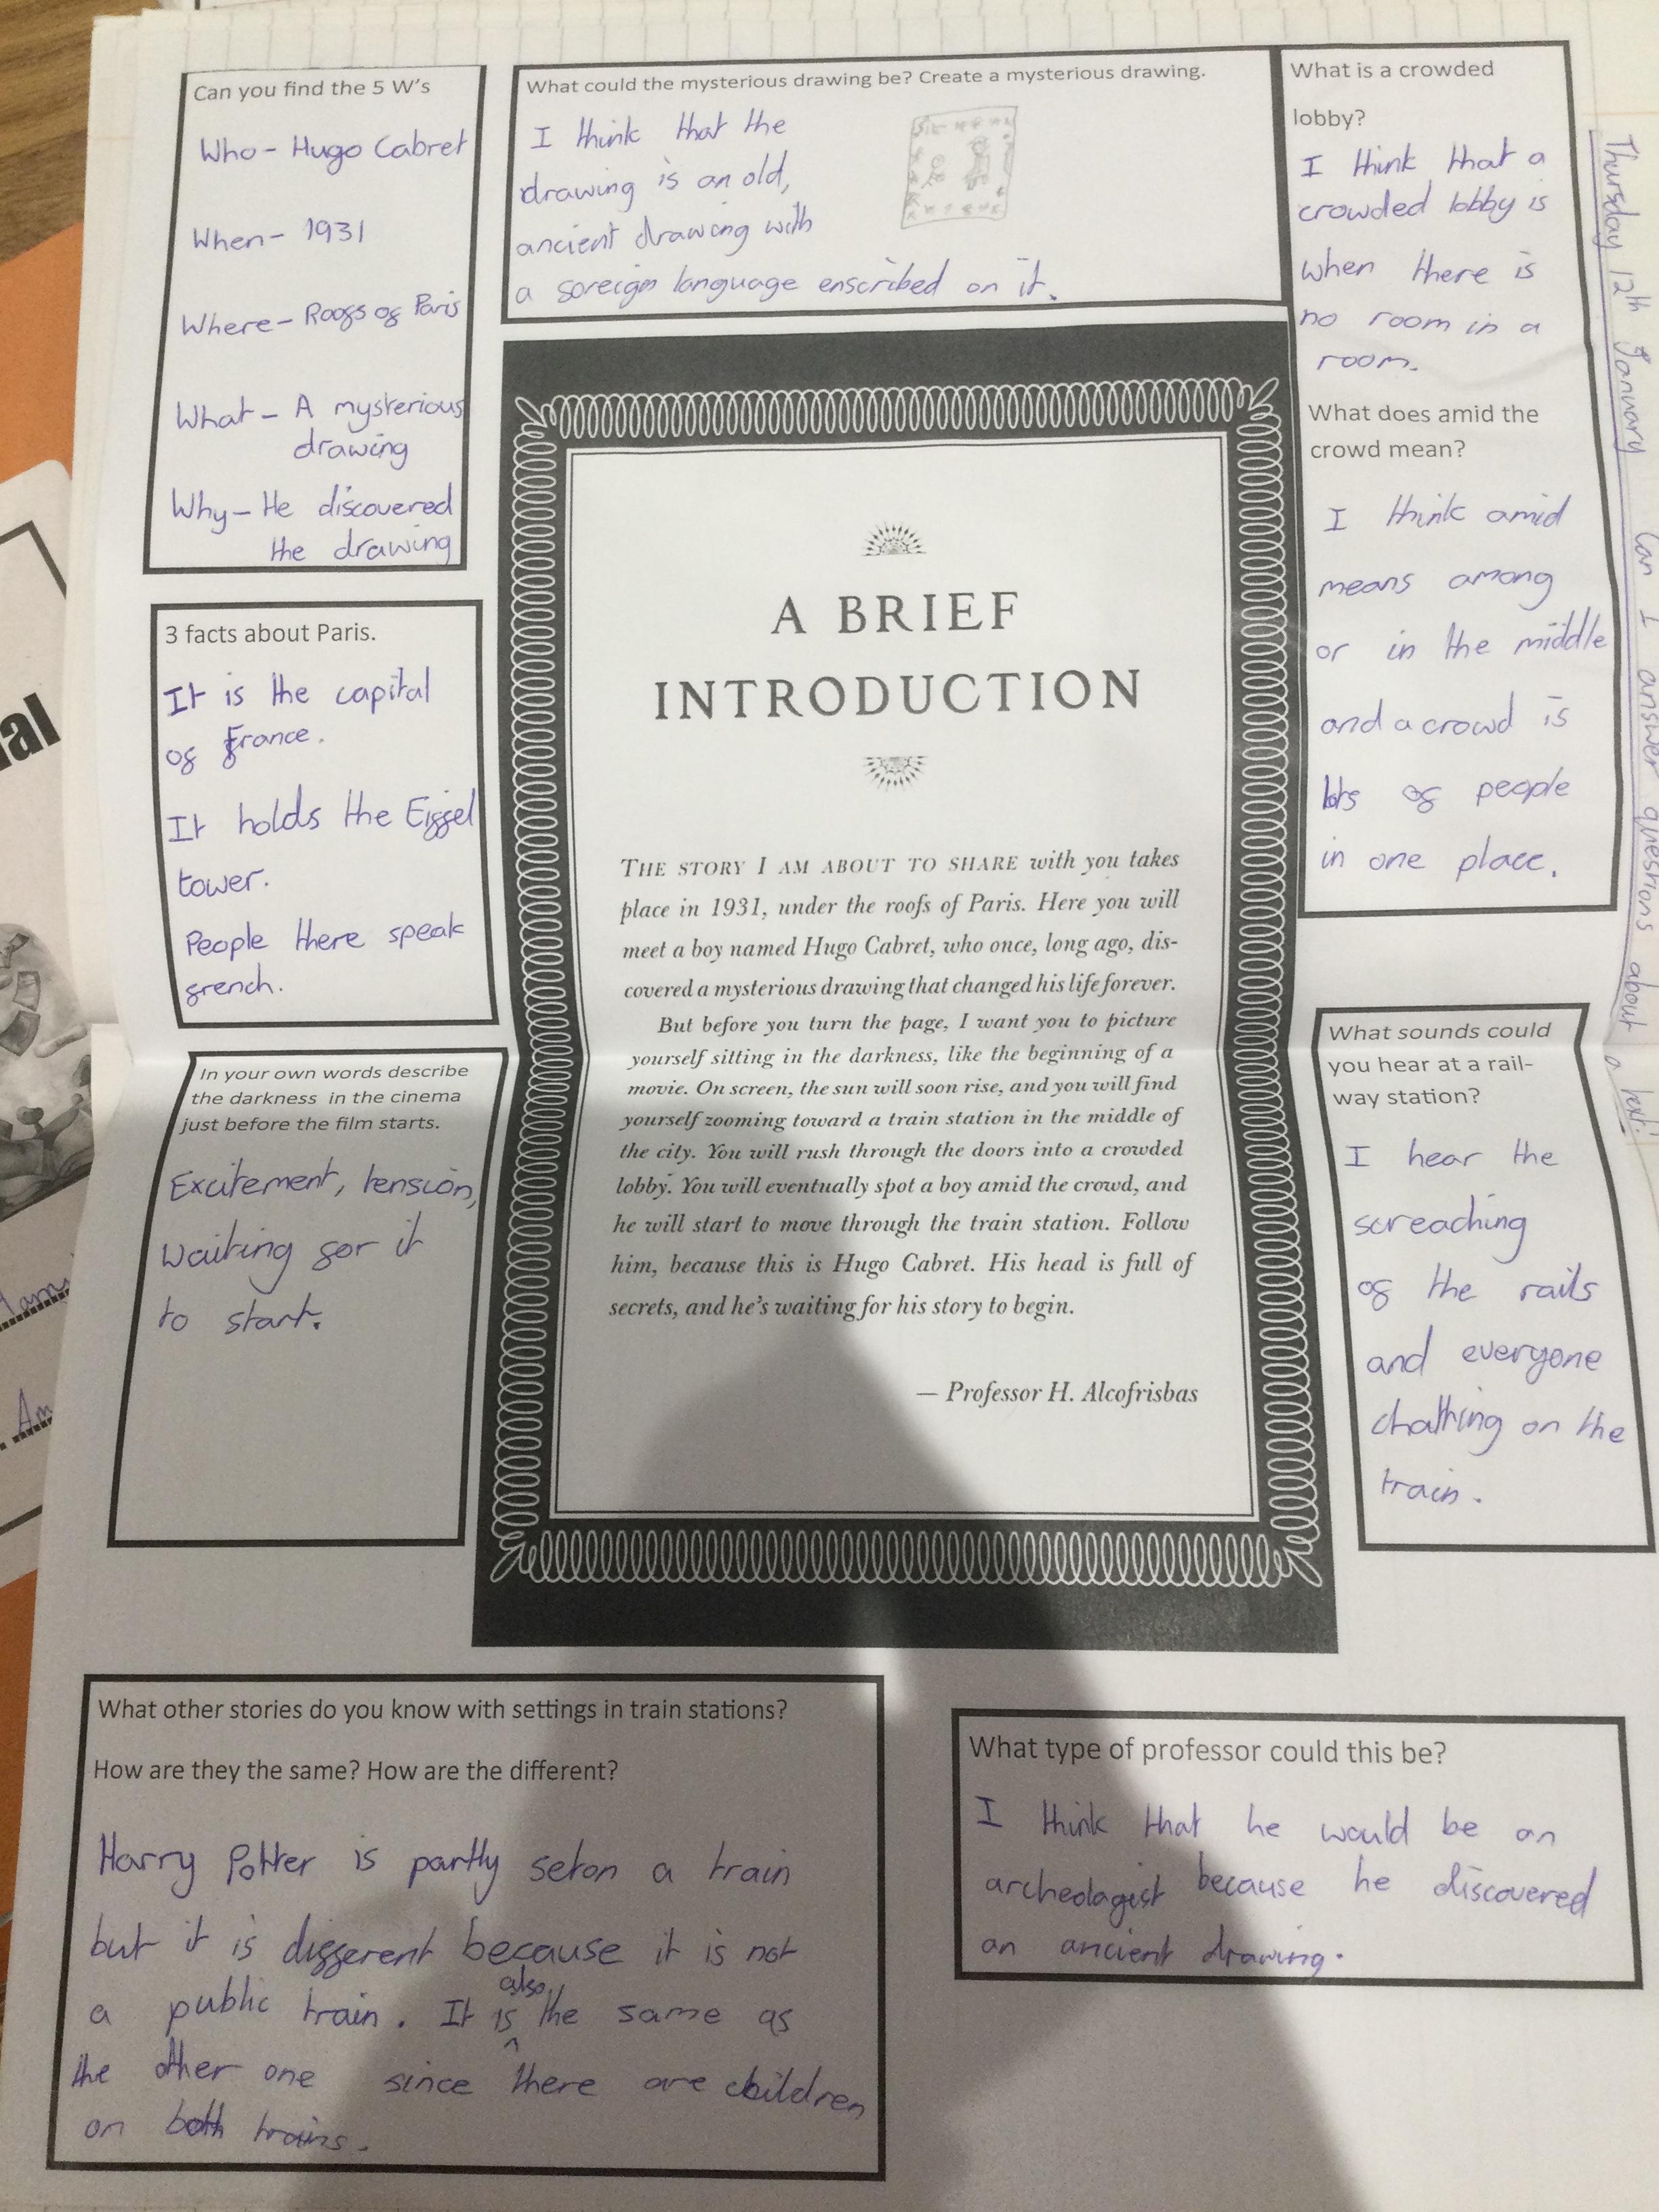 Can you find the 5 W's
Who - Hugo Cabret
When - 1931
Where - Roofs of Paris
What - A mysterious
drawing
Why - He discovered
the drawing
What could the mysterious drawing be? Create a mysterious drawing.
I think that the
drawing is an old,
ancient drawing with
a foreign language enscribed on it.
What is a crowded
lobby?
I think that a
crowded lobby is
when there is
no room in a
room.
What does amid the
crowd mean?
I think amid
means among
or in the middle
and a crowd is
lots of people
in one place.
Thursday 12th January Can I answer questions about a text?
3 facts about Paris.
It is the capital
of France.
It holds the Eiffel
tower.
People there speak
french.
A BRIEF
INTRODUCTION
THE STORY I AM ABOUT TO SHARE with you takes
place in 1931, under the roofs of Paris. Here you will
meet a boy named Hugo Cabret, who once, long ago, dis-
covered a mysterious drawing that changed his life forever.
But before you turn the page, I want you to picture
yourself sitting in the darkness, like the beginning of a
movie. On screen, the sun will soon rise, and you will find
yourself zooming toward a train station in the middle of
the city. You will rush through the doors into a crowded
lobby. You will eventually spot a boy amid the crowd, and
he will start to move through the train station. Follow
him, because this is Hugo Cabret. His head is full of
secrets, and he's waiting for his story to begin.
— Professor H. Alcofrisbas
In your own words describe
the darkness in the cinema
just before the film starts.
Excitement, tension,
waiting for it
to start.
What sounds could
you hear at a rail-
way station?
I hear the
screaching
of the rails
and everyone
chatting on the
train.
What other stories do you know with settings in train stations?
How are they the same? How are the different?
Harry Potter is partly set on a train
but it is different because it is not
a public train. It is also the same as
the other one since there are children
on both trains.
What type of professor could this be?
I think that he would be an
archeologist because he discovered
an ancient drawing.
al